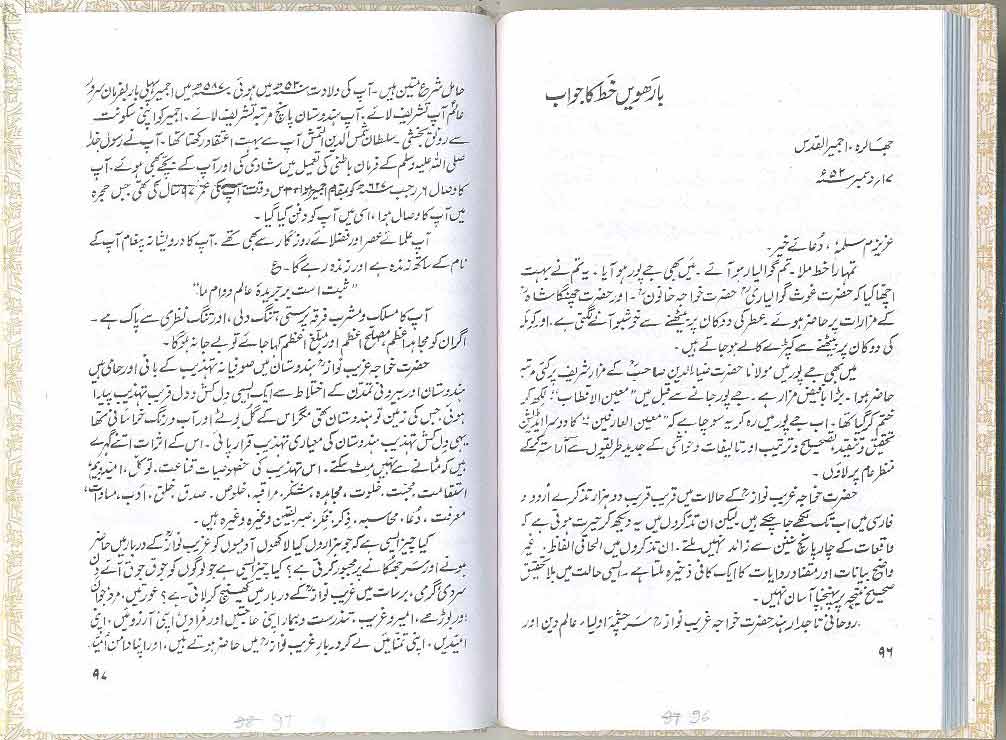 بارھویں خط کا جواب
جھالرہ ، اجمیر القدس
۱۷؍ دسمبر ۵۳ء
عزیزم سلمہٗ ، دُعائے خیر۔
تمہارا خط ملا۔ تم گوالیار ہو آئے ۔ میں بھی جے پور ہو آیا ۔ یہ تم نے بہت
اچھا کیا کہ حضرت غوث گوالیاریؒ حضرت خواجہ خانونؒ ۔ اور حضرت
کے مزارات پر حاضر ہوئے عطر کی دوکان پر بیٹھنے سے خوشبو آنے لگتی ہے ۔ اور کوئلہ
کی دوکان پر بیٹھنے سے کپڑے کالے ہو جاتے ہیں ۔
میں بھی جے پور میں مولانا حضرت ضیاء الدین صاحبؒ کے مزار شریف پر کئی مرتبہ
حاضر ہوا ۔ بڑا بافیض مزار ہے ۔ جے پور جانے سے قبل میں "معین الاقطاب" لکھ کر
ختم کر گیا تھا ۔ اب جے پور میں رہ کر یہ سوچا ہے کہ "معین العارفین" کا دوسرا ایڈیشن
تحقیق و تنقید ، تصحیح و ترتیب اور تالیفات و تراشی کے جدید طریقوں سے آراستہ کر کے
منظر عام پر لاؤں ۔
حضرت خواجہ غریب نوازؒ کے حالات میں قریب قریب دو ہزار تذکرے اُردو و
فارسی میں اب تک لکھے جا چکے ہیں ۔ لیکن ان تذکروں میں یہ دیکھ کر حیرت ہوتی ہے کہ
واقعات کے چار پانچ سنین سے زائد نہیں ملتے ۔ ان تذکروں میں الحاقی الفاظ ، غیر
واضح بیانات اور متضاد روایات کا ایک کافی ذخیرہ ملتا ہے ۔ ایسی حالت میں بلا تحقیق
صحیح نتیجہ پر پہنچنا آسان نہیں ۔
روحانی تاجدار ہند حضرت خواجہ غریب نوازؒ سرچشمۂ اولیاء عالم دین اور
۹۶
96
حامل شرع متین ہیں ۔ آپ کی ولادت ۵۳۰ھ میں ہوئی ۵۸۷ھ میں اجمیر پہلی بار بفرمان سرور
عالمؐ آپ تشریف لائے ۔ آپ ہندوستان پانچ مرتبہ تشریف لائے ، اجمیر کو اپنی سکونت
سے رونق بخشی ۔ سلطان شمس الدین التمش آپ سے بہت اعتقاد رکھتا تھا ۔ آپ نے رسول خدا
صلی اللہ علیہ وسلم کے فرمان باطنی کی تعمیل میں شادی کی اور آپ کے بچے بھی ہوئے ، آپ
کا وصال ۶ رجب ۶۲۷ھ کو بمقام اجمیر ہوا اس وقت آپ کی عمر ۹۷ سال کی تھی جس حجرہ
میں آپ کا وصال ہوا ، اسی میں آپ کو دفن کیا گیا ۔
آپ علمائے عصر اور فضلائے روزگار سے بھی تھے ۔ آپ کا درویشانہ پیغام آپ کے
نام کے ساتھ زندہ ہے اور زندہ رہے گا ۔ ع
"ثبت است بر جریدۂ عالم دوام ما"
آپ کا مسلک و مشرب فرقہ پرستی ، تنگ دلی ، اور تنگ نظری سے پاک ہے ۔
اگر ان کو مجاہد اعظم مصلح اعظم اور مبلغ اعظم کہا جائے تو بے جا نہ ہوگا ۔
حضرت خواجہ غریب نوازؒ ہندوستان میں صوفیانہ تہذیب کے بانی اور حامی ہیں
ہندوستان اور بیرونی تمدن کے اختلاط سے ایک ایسی دل کش و دل فریب تہذیب پیدا
ہوئی ، جس کی زمین تو ہندوستان تھی مگر اس کے گل بوٹے اور آب و رنگ خراسانی تھا
یہی دل کش تہذیب ہندوستان کی معیاری تہذیب قرار پائی ۔ اس کے اثرات اتنے گہرے
ہیں کہ مٹائے سے نہیں مٹ سکتے ۔ اس تہذیب کی خصوصیات قناعت ، توکل ، امید و بیم ،
استقامت ، محبت ، خلوت ، مجاہدہ ، شکر ، مراقبہ ، خلوص ، صدق ، خلق ، ادب ، مساوات ،
معرفت ، دُعا ، محاسبہ ، ذکر ، فکر ، صبر یقین وغیرہ وغیرہ ہیں ۔
کیا چیز ایسی ہے کہ جو ہزاروں کیا لاکھوں آدمیوں کو غریب نوازؒ کے دربار میں حاضر
ہونے اور سر جھکانے پر مجبور کرتی ہے ؟ کیا چیز ایسی ہے جو لوگوں کو جوق جوق آئے دن
سردی گرمی ، برسات میں غریب نوازؒ کے دربار میں کھینچ کر لاتی ہے ؟ عورتیں ، مرد جوان
اور بوڑھے ، امیر و غریب ، تندرست و بیمار اپنی حاجتیں اور مرادیں اپنی آرزوئیں ، اپنی
امیدیں ، اپنی تمنائیں لے کر دربار غریب نوازؒ میں حاضر ہوتے ہیں ، اور اپنا دامن
۹۷
97